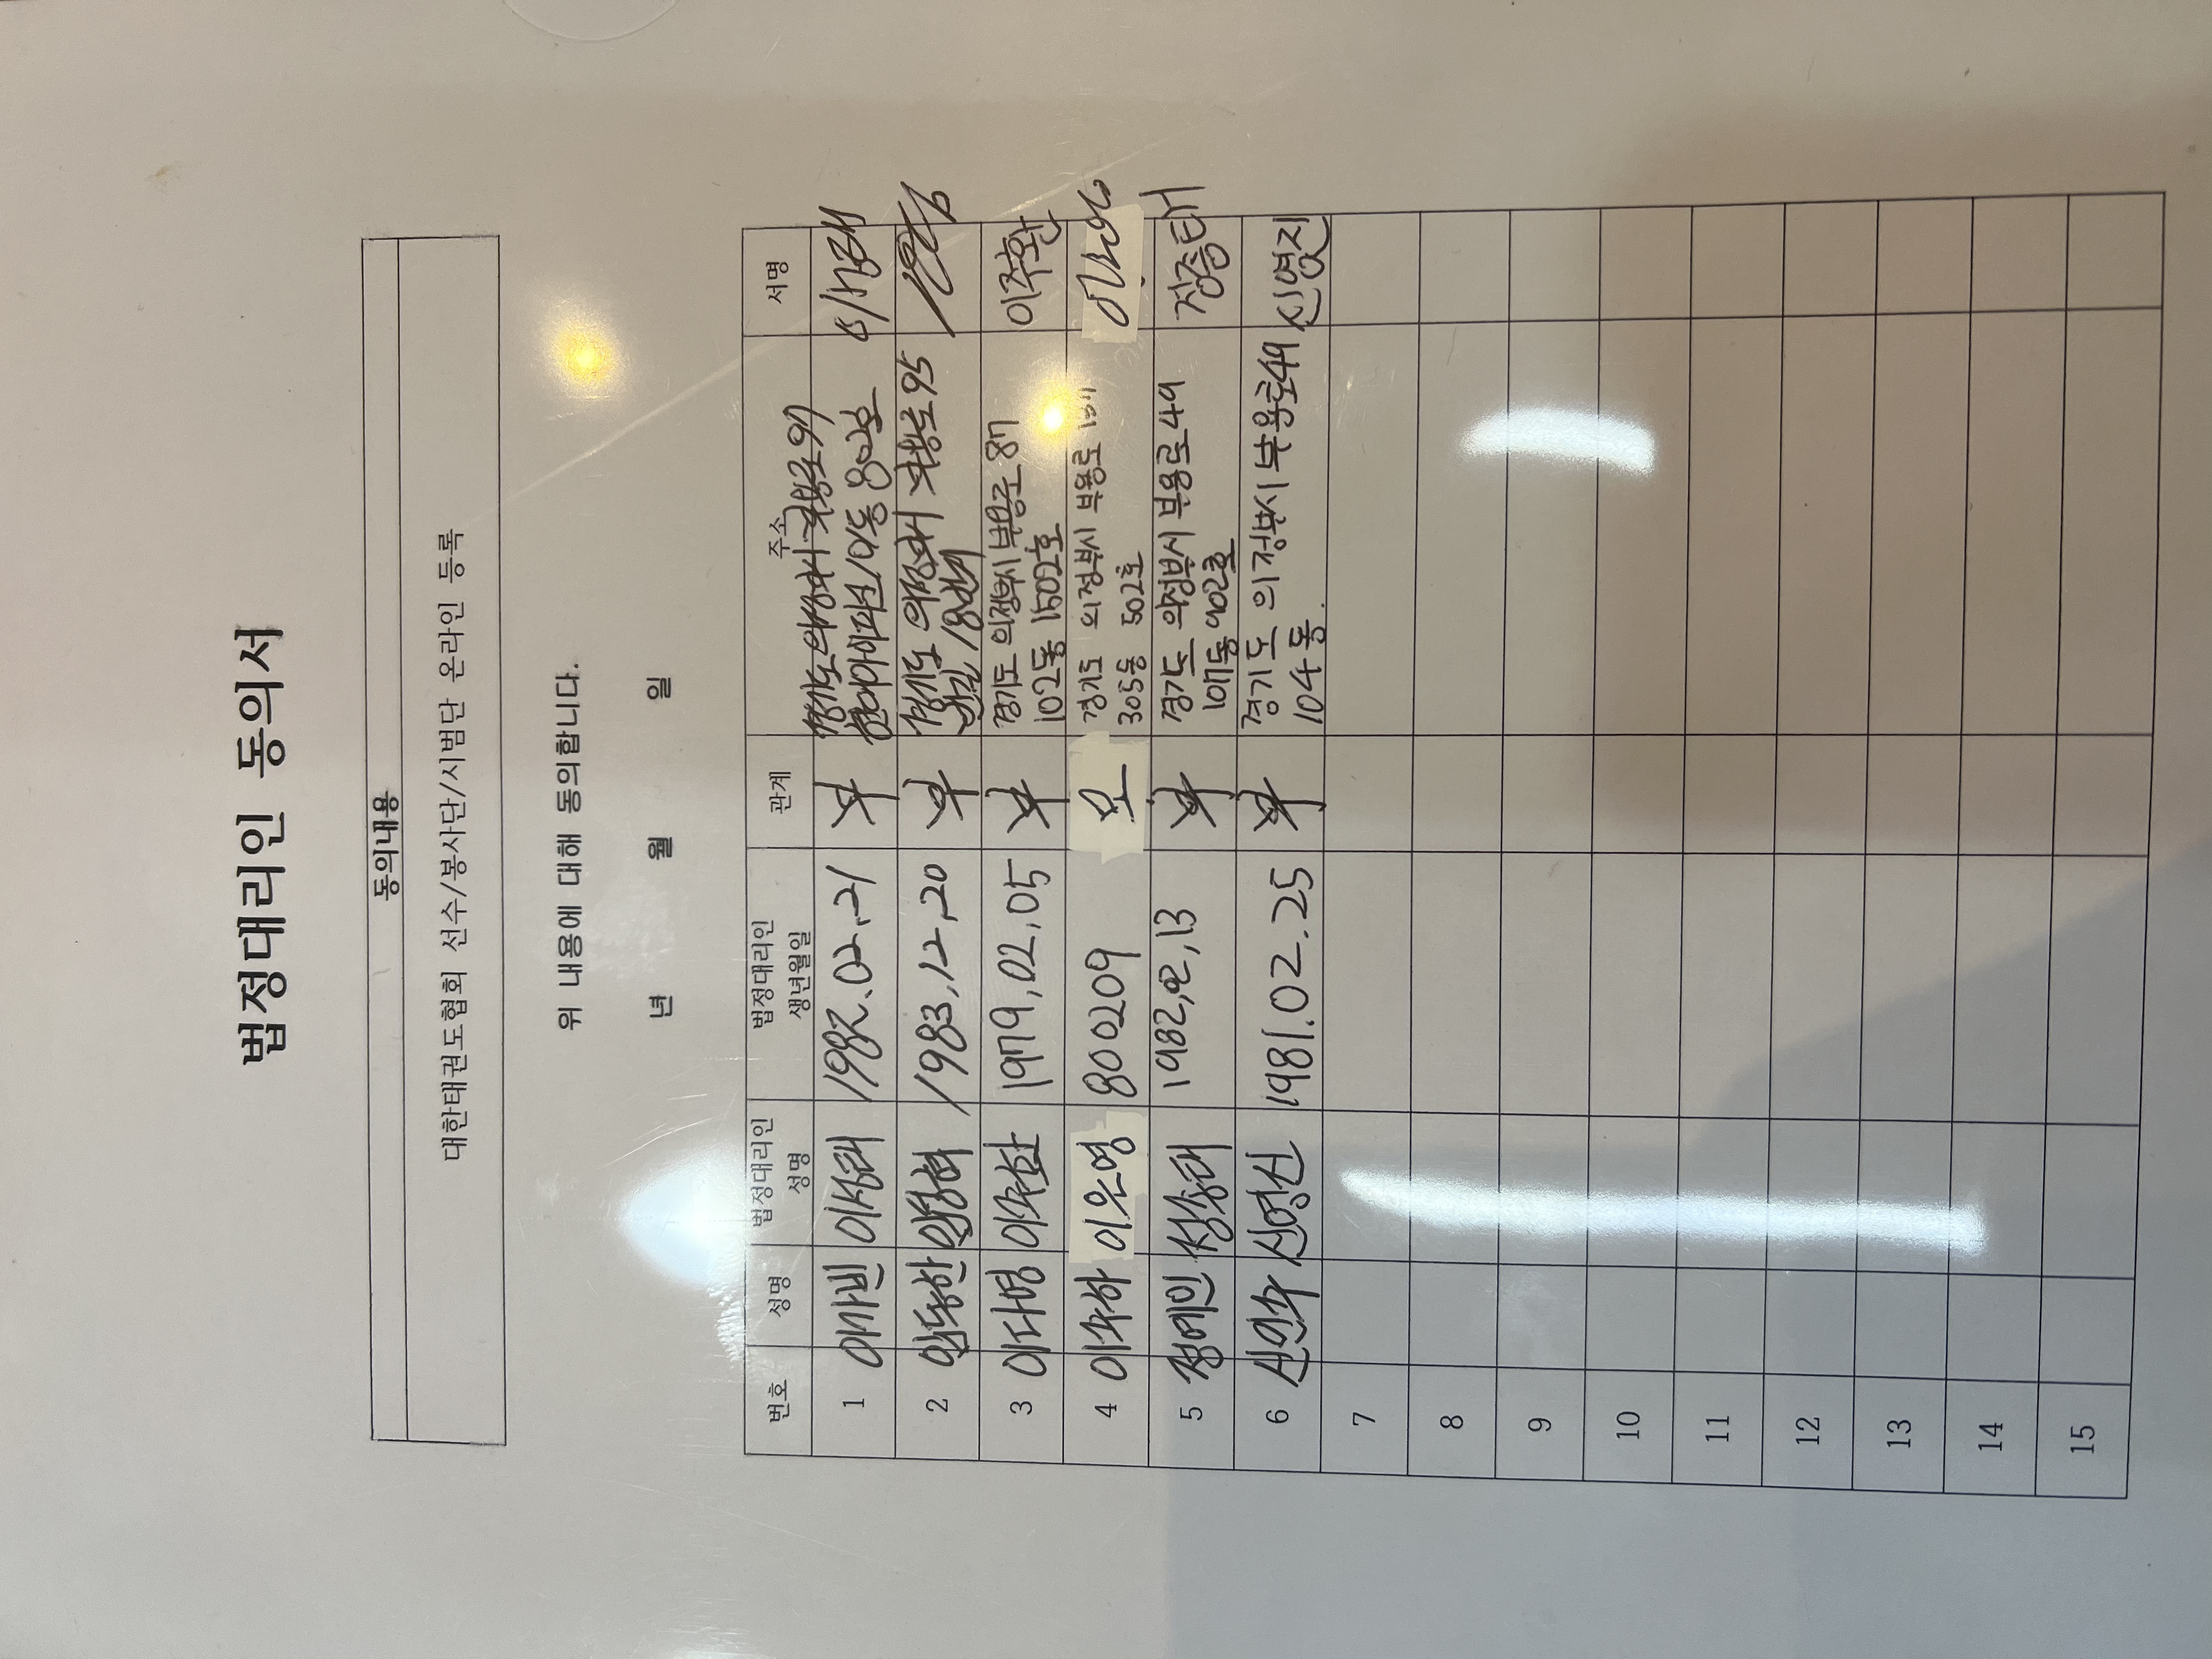 법정대리인 동의서
동의내용
대한태권도협회 선수/봉사단/시범단 온라인 등록
위 내용에 대해 동의합니다.
년 월 일
번호 성명 법정대리인 성명 법정대리인 생년월일 관계 주소 서명
1 이가빈 이성태 1982.02.21 부 경기도 의정부시 97 아이파크 101동 802호
2 임동한 1983.12.20 부 경기도 의정부시 95
3 이다영 이주환 1979.02.05 부 경기도 의정부시 부용로 87 이주환
102동 1502호
4 이주하 이은영 800209 모 경기도 의정부시 부용로
305동 502호
5 정예인 정충태 1982, 13 부 경기도 의정부시 부용로49 정충태
107동 902호
6 신연우 1981.02.25 부 경기도 의정부시 부용로49
104동.
7
8
9
10
11
12
13
14
15